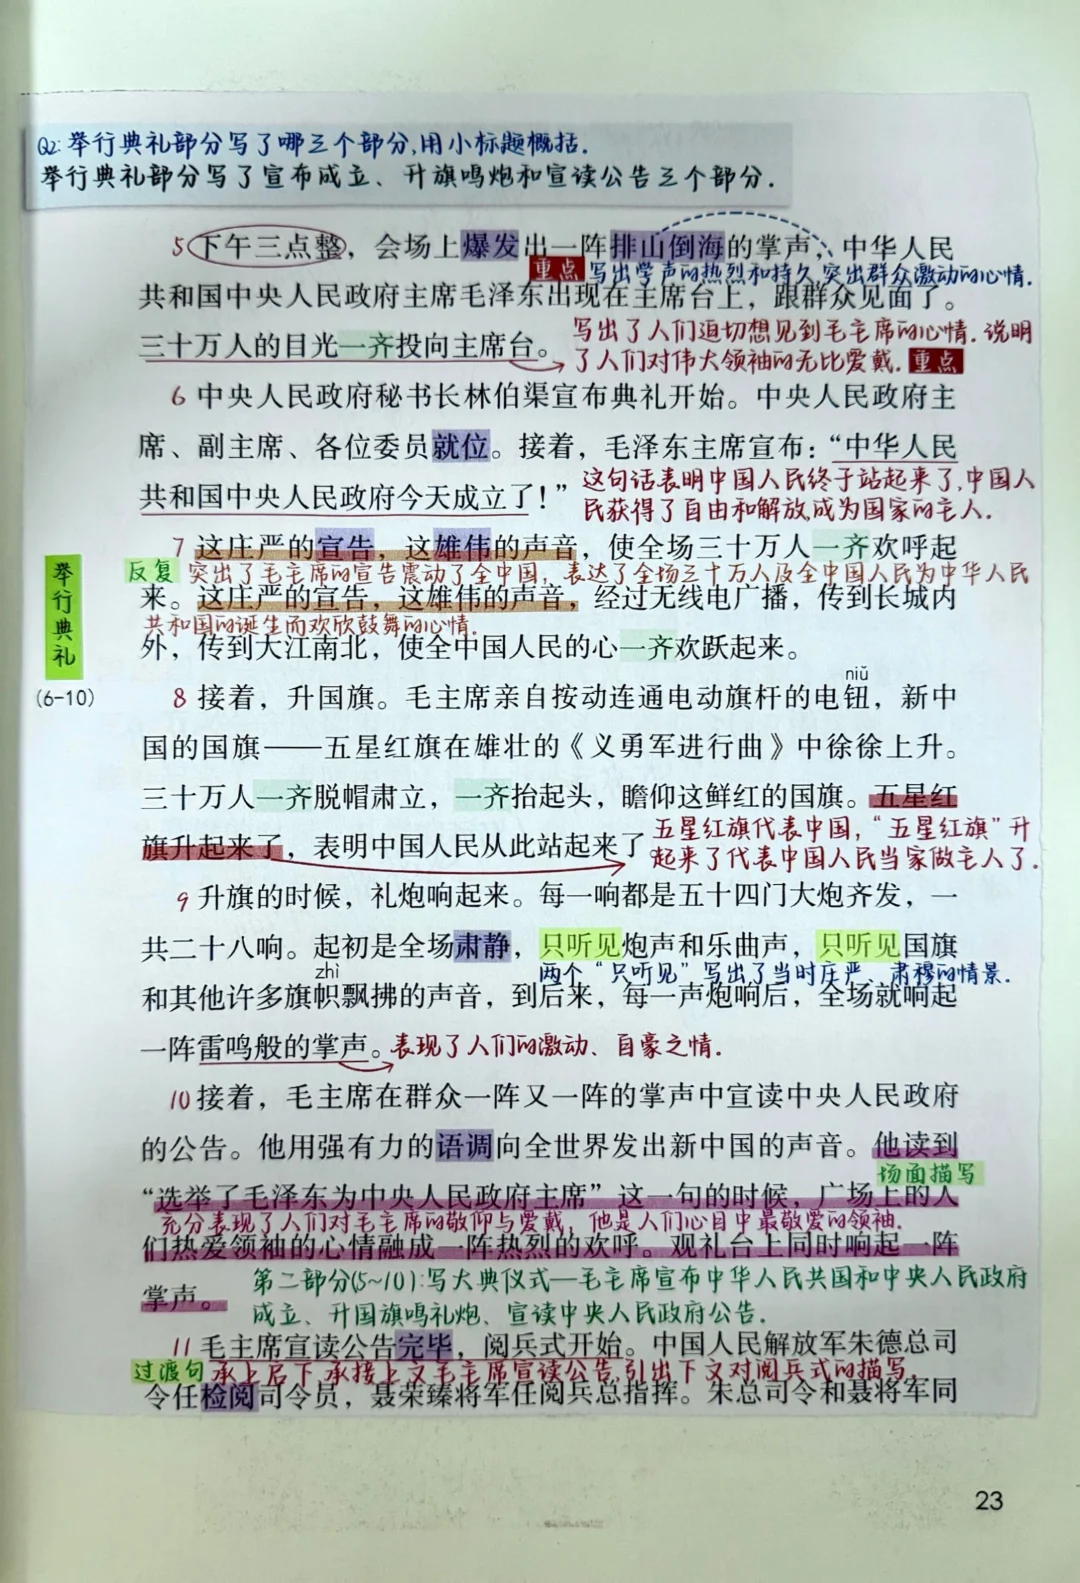 Q2:举行典礼部分写了哪三个部分,用小标题概括.
举行典礼部分写了宣布成立、升旗鸣炮和宣读公告三个部分.
5下午三点整，会场上爆发出一阵排山倒海的掌声，中华人民
重点 写出掌声的热烈和持久,突出群众激动的心情.
共和国中央人民政府主席毛泽东出现在主席台上，跟群众见面了。
写出了人们迫切想见到毛主席的心情.说明
三十万人的目光一齐投向主席台。
了人们对伟大领袖的无比爱戴.重点
6中央人民政府秘书长林伯渠宣布典礼开始。中央人民政府主
席、副主席、各位委员就位。接着，毛泽东主席宣布：“中华人民
这句话表明中国人民终于站起来了,中国人
共和国中央人民政府今天成立了！”
民获得了自由和解放,成为国家的主人.
7这庄严的宣告，这雄伟的声音，使全场三十万人一齐欢呼起
反复 突出了毛主席的宣告震动了全中国，表达了全场三十万人及全中国人民为中华人民
来。这庄严的宣告，这雄伟的声音，经过无线电广播，传到长城内
共和国的诞生而欢欣鼓舞的心情.
外，传到大江南北，使全中国人民的心一齐欢跃起来。
举行典礼
(6-10)
niǔ
8接着，升国旗。毛主席亲自按动连通电动旗杆的电钮，新中
国的国旗——五星红旗在雄壮的《义勇军进行曲》中徐徐上升。
三十万人一齐脱帽肃立，一齐抬起头，瞻仰这鲜红的国旗。五星红
五星红旗代表中国，“五星红旗”升
旗升起来了，表明中国人民从此站起来了
起来了代表中国人民当家做主人了.
9升旗的时候，礼炮响起来。每一响都是五十四门大炮齐发，一
共二十八响。起初是全场肃静，只听见炮声和乐曲声，只听见国旗
zhì
两个“只听见”写出了当时庄严、肃穆的情景.
和其他许多旗帜飘拂的声音，到后来，每一声炮响后，全场就响起
一阵雷鸣般的掌声。表现了人们的激动、自豪之情.
10接着，毛主席在群众一阵又一阵的掌声中宣读中央人民政府
的公告。他用强有力的语调向全世界发出新中国的声音。他读到
场面描写
“选举了毛泽东为中央人民政府主席”这一句的时候，广场上的人
充分表现了人们对毛主席的敬仰与爱戴，他是人们心目中最敬爱的领袖.
们热爱领袖的心情融成一阵热烈的欢呼。观礼台上同时响起一阵
第二部分(5~10):写大典仪式—毛主席宣布中华人民共国和中央人民政府
掌声。
成立、升国旗鸣礼炮、宣读中央人民政府公告.
11毛主席宣读公告完毕，阅兵式开始。中国人民解放军朱德总司
过渡句 承上启下 承接上文毛主席宣读公告,引出下文对阅兵式的描写
令任检阅司令员，聂荣臻将军任阅兵总指挥。朱总司令和聂将军同
23